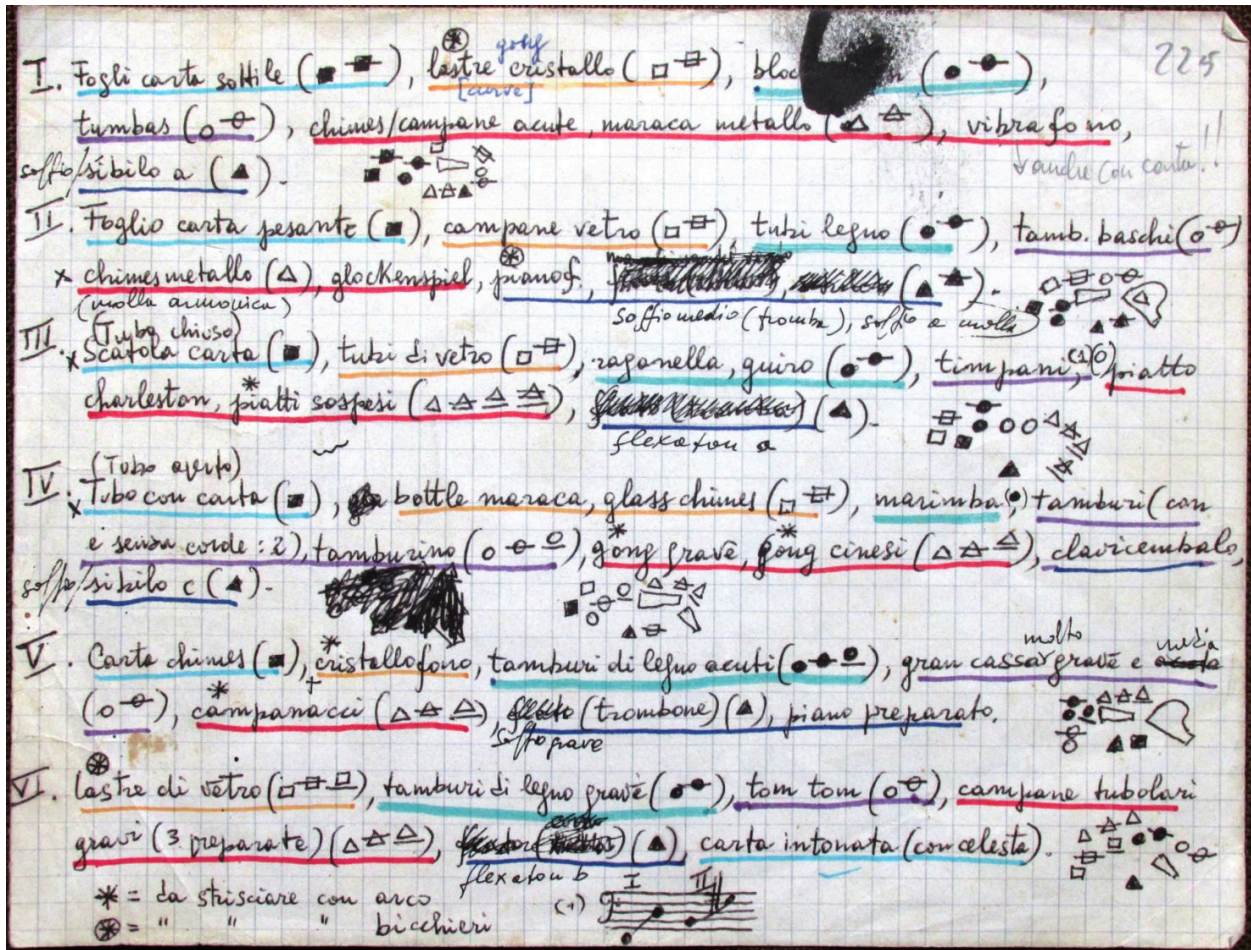 gong
I. Fogli carta sottile (■ ■), lastre cristallo (□ □), (● ●),
[curve]
225
tumbas (○ ○), chimes/campane acute, maraca metallo (△ △), vibrafono,
soffio/sibilo a (▲).
anche con carta!!
II. Foglio carta pesante (■), campane vetro (□ □), tubi legno (● ●), tamb. baschi (○ ○)
x chimes metallo (△), glockenspiel, pianof. (▲ ▲).
(molla armonica) soffio medio (tromba), soffio e molla
(Tubo chiuso)
III. x Scatola carta (■), tubi di vetro (□ □), raganella, guiro (● ●), timpani, (1) (○) piatto
charleston, * piatti sospesi (△ △ △ △), (▲).
flexaton a
(Tubo aperto)
IV. x Tubo con carta (■), bottle maraca, glass chimes (□ □), marimba (●), tamburi (con
e senza corde: 2), tamburino (○ ○ ○), * gong grave, * gong cinesi (△ △ △), clavicembalo,
soffio/sibilo c (▲).
molto media
V. Carta chimes (■), * cristallofono, tamburi di legno acuti (● ● ●), gran cassa grave e
(○ ○), * campanacci (△ △ △), (trombone) (▲), piano preparato.
soffio grave
VI. lastre di vetro (□ □ □), tamburi di legno grave (● ●), tom tom (○ ○), campane tubolari
gravi (3 preparate) (△ △ △), (▲), carta intonata (con celesta).
flexaton b
* = da strisciare con arco
⊛ = " " " bicchieri
(1) I II